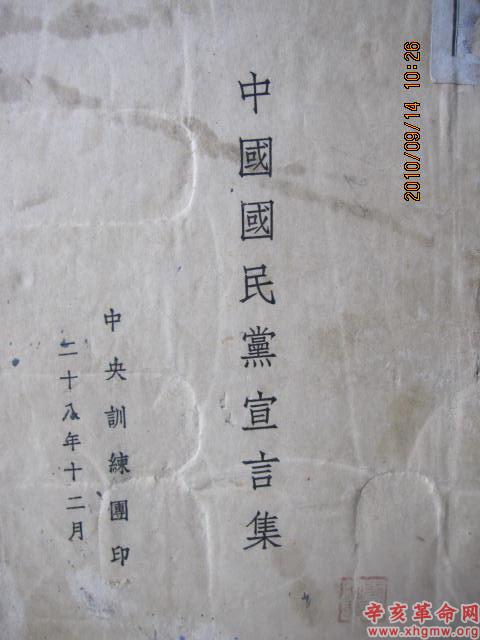 中國國民黨宣言集
中央訓練團印
二十八年十二月
2010/09/14 10:26
辛亥革命网
www.xhgmw.org